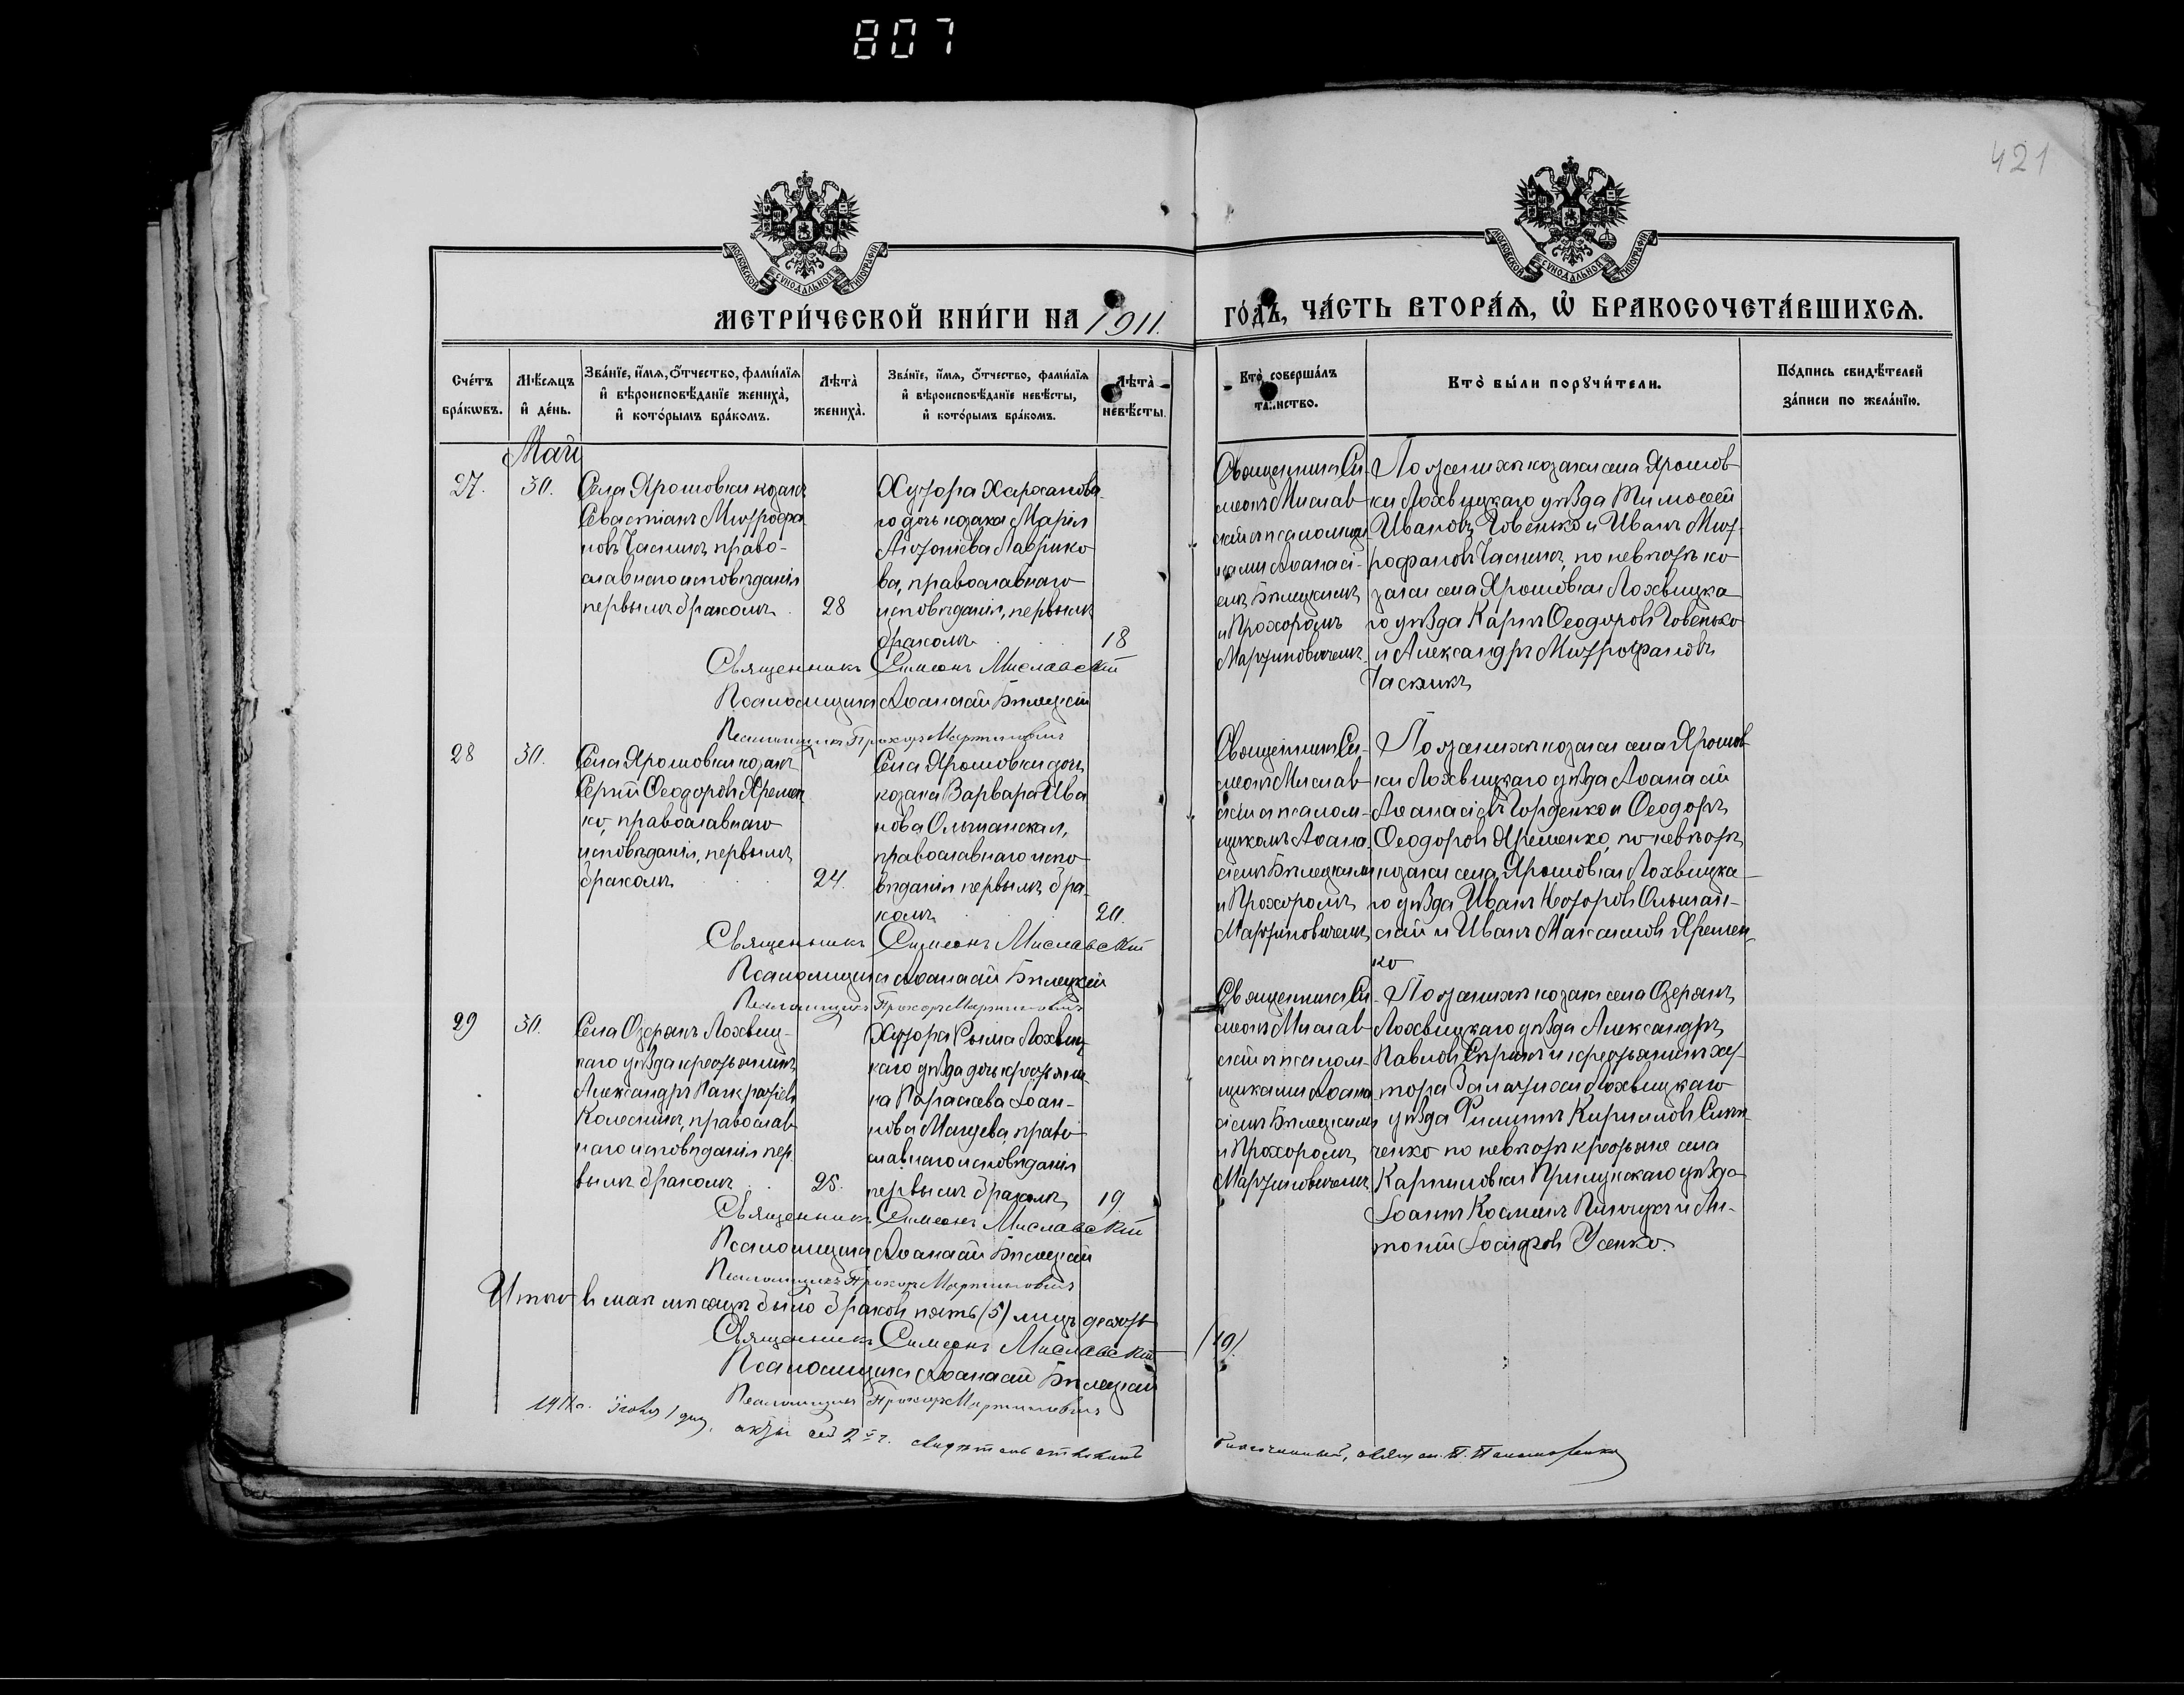 807
421
МОСКОВСКОЙ СУНОДАЛЬНОЙ ТИПОГРАФІИ
МОСКОВСКОЙ СУНОДАЛЬНОЙ ТИПОГРАФІИ
МЕТРИ́ЧЕСКОЙ КНИ́ГИ НА 1911.
ГО́ДЪ, ЧА́СТЬ ВТОРА́Я, Ѽ БРАКОСОЧЕТА́ВШИХСЯ.
Сче́тъ
бра́кωвъ.
Мѣ́сяцъ
и҆ де́нь.
Зва́нїе, и҆́мя, ѻ҆́тчество, фами́лїя
и҆ вѣроисповѣ́данїе жениха̀,
и҆ кото́рымъ бра́комъ.
Лѣта̀
жениха̀.
Зва́нїе, и҆́мя, ѻ҆́тчество, фами́лїя
и҆ вѣроисповѣ́данїе невѣ́сты,
и҆ кото́рымъ бра́комъ.
Лѣта̀
невѣ́сты.
Кто̀ соверша́лъ
таинство.
Кто̀ бы́ли порꙋчи́тели.
По́дпись свидѣ́телей
за́писи по жела́нїю.
Май
27.
30.
Села Ярошовки козакъ
Севастіанъ Митрофа
новъ Часникъ право-
славнаго исповѣданія
первымъ бракомъ
28
Хутора Харханова
го дочь козака Марія
Антоніева Лаврико
ва, православнаго
исповѣданія, первымъ
бракомъ
18
Священникъ Си-
меонъ Мислав-
скій съ псаломщи
ками Аѳанасі-
емъ Бѣлецкимъ
и Прохоромъ
Мартиновичемъ
По женихѣ козаки села Ярошов-
ки Лохвицкаго уѣзда Тимоѳей
Ивановъ Говенько и Иванъ Мит-
рофановъ Часникъ, по невѣстѣ ко-
заки села Ярошовки Лохвицка-
го уѣзда Карпъ Ѳеодоровъ Говенько
и Александръ Митрофановъ
Часникъ
Священникъ Симеонъ Миславскій
Псаломщикъ Аѳанасій Бѣлецкій
Псаломщикъ Прохоръ Мартиновичъ
28
30.
Села Ярошовки козакъ
Сергій Ѳеодоровъ Яремен
ко, православнаго
исповѣданія, первымъ
бракомъ
24.
Села Ярошовки дочь
козака Варвара Ива
нова Ольшанская,
православнаго испо-
вѣданія первымъ бра-
комъ
20.
Священникъ Си-
меонъ Мислав-
скій съ псалом-
щикомъ Аѳана
сіемъ Бѣлецкимъ
и Прохоромъ
Мартиновичемъ
По женихѣ козаки села Ярошов
ки Лохвицкаго уѣзда Аѳанасій
Аѳанасіевъ Горденко и Ѳеодоръ
Ѳеодоровъ Яременко, по невѣстѣ
козаки села Ярошовки Лохвицка-
го уѣзда Иванъ Ольшан-
скій и Иванъ Максимовъ Яремен
ко
Священникъ Симеонъ Миславскій
Псаломщикъ Аѳанасій Бѣлецкій
Псаломщикъ Прохоръ Мартиновичъ
29
30.
Села Озерянъ Лохвиц-
каго уѣзда крестьянинъ
Александръ Панкратіевъ
Колесникъ, православ
наго исповѣданія пер
вымъ бракомъ
25.
Хутора Лохвиц
каго уѣзда дочь крестьяни
на Параскева Іоан-
нова Мацева, право
славнаго исповѣданія
первымъ бракомъ
19
Священникъ Си
меонъ Мислав
скій съ псалом-
щиками Аѳана
сіемъ Бѣлецкимъ
и Прохоромъ
Мартиновичемъ
По женихѣ козаки села Озерянъ
Лохвицкаго уѣзда Александръ
Павловъ и крестьянинъ ху-
тора Лохвицкаго
уѣзда Филиппъ Кирилловъ
ченко по невѣстѣ крестьяне села
Карпиловки Прилукскаго уѣзда
Іоаннъ Косминъ и Ан-
тоній Іосифовъ Усенко.
Священникъ Симеонъ Миславскій
Псаломщикъ Аѳанасій Бѣлецкій
Псаломщикъ Прохоръ Мартиновичъ
Итого въ маѣ мѣсяцѣ было браковъ пять (5) лицъ десять
(10).
Священникъ Симеонъ Миславскій
Псаломщикъ Аѳанасій Бѣлецкій
Псаломщикъ Прохоръ Мартиновичъ
1911 г. іюня 1 дня, акты сей 2ой ч.
Благочинный, священ. П.